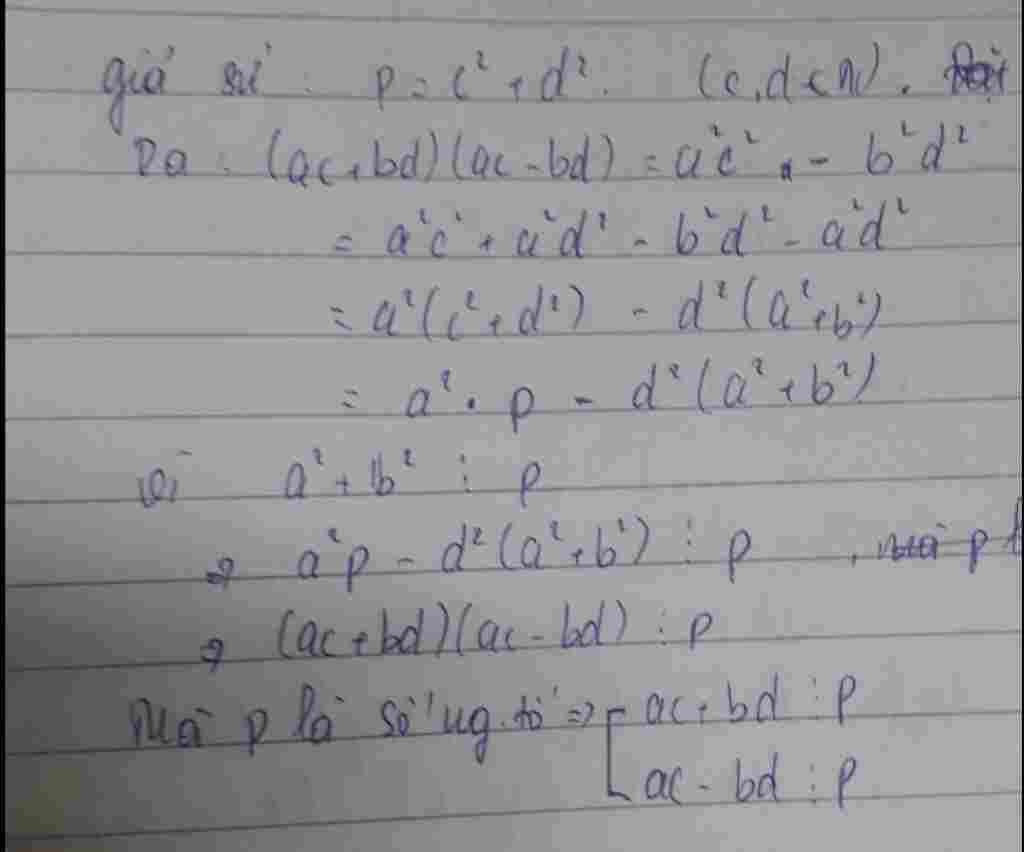 giả sử: p = c² + d². (c, d < n).
Da: (ac + bd)(ac - bd) = a²c² - b²d²
= a²c² + a²d² - b²d² - a²d²
= a²(c² + d²) - d²(a² + b²)
= a² . p - d²(a² + b²)
Vì a² + b² ⋮ p
⇒ a²p - d²(a² + b²) ⋮ p , mà p
⇒ (ac + bd)(ac - bd) ⋮ p
Mà p là số ng.tố ⇒ [ ac + bd ⋮ p
ac - bd ⋮ p